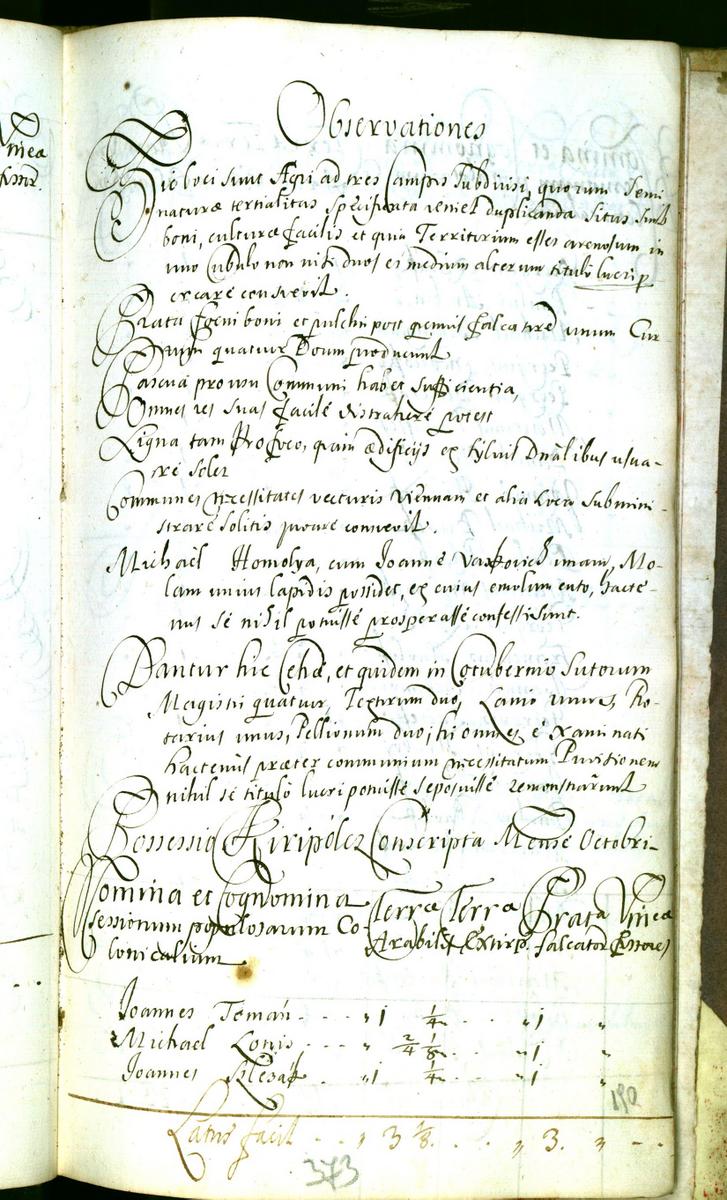 Observationes
Hic loci sunt Agri ad tres Campos Subdivisi, quorum Semi-
naturæ tertialitas specificata veniet duplicanda Situs sunt
boni, culturæ facilis et quia Territorium esset arenosum in
uno Cubulo non nisi duos et medium alterum titulo lucri p
ercare consvevit.
Prata foeni boni et pulchri post quemvis falcatorem unum Cur-
rum quatuor Boum producunt
Pascua pro usu Communi habet sufficientia,
Omnes res suas facilè distrahere potest
Ligna tam pro foco, quam ædificijs ex sylvis Dnalibus usua-
re solet
Communes necessitates vecturis Viennam et alia Loca submini-
strare solitis juvare consvevit.
Michaël Homolya, cum Joanne unam Mo-
lam unius lapidis possidet, ex cuius emolumento, hacte-
nus se nihil potuisse prosperasse confessi sunt.
Dantur hic Cehæ, et quidem in Cotubernio Sutorum
Magistri quatuor, Textrum duo, Lanio unus, Ro-
tarius unus, Pellionum duo, hi omnes examinati
hactenus præter communium necessitatum Provisionem
nihil se titulô lucri potuisse seposuisse remonstrarunt
Possessio Kiripólcz Conscripta Mense Octobri
Nomina et Cognomina Terræ Terræ Prata Vineæ
Sessionum populosarum Co- Arabiles Extirp. falcator Fossores
lonicalium
Joannes Teman . . „ 1 1/4 . . „ 1 „
Michael Lonis . . „ 2/4 1/8 . . „ 1 „
Joannes Klesák . . „ 1 1/4 . . „ 1 „
190
Latus facit . . „ 3 1/8 . . „ 3. „
373